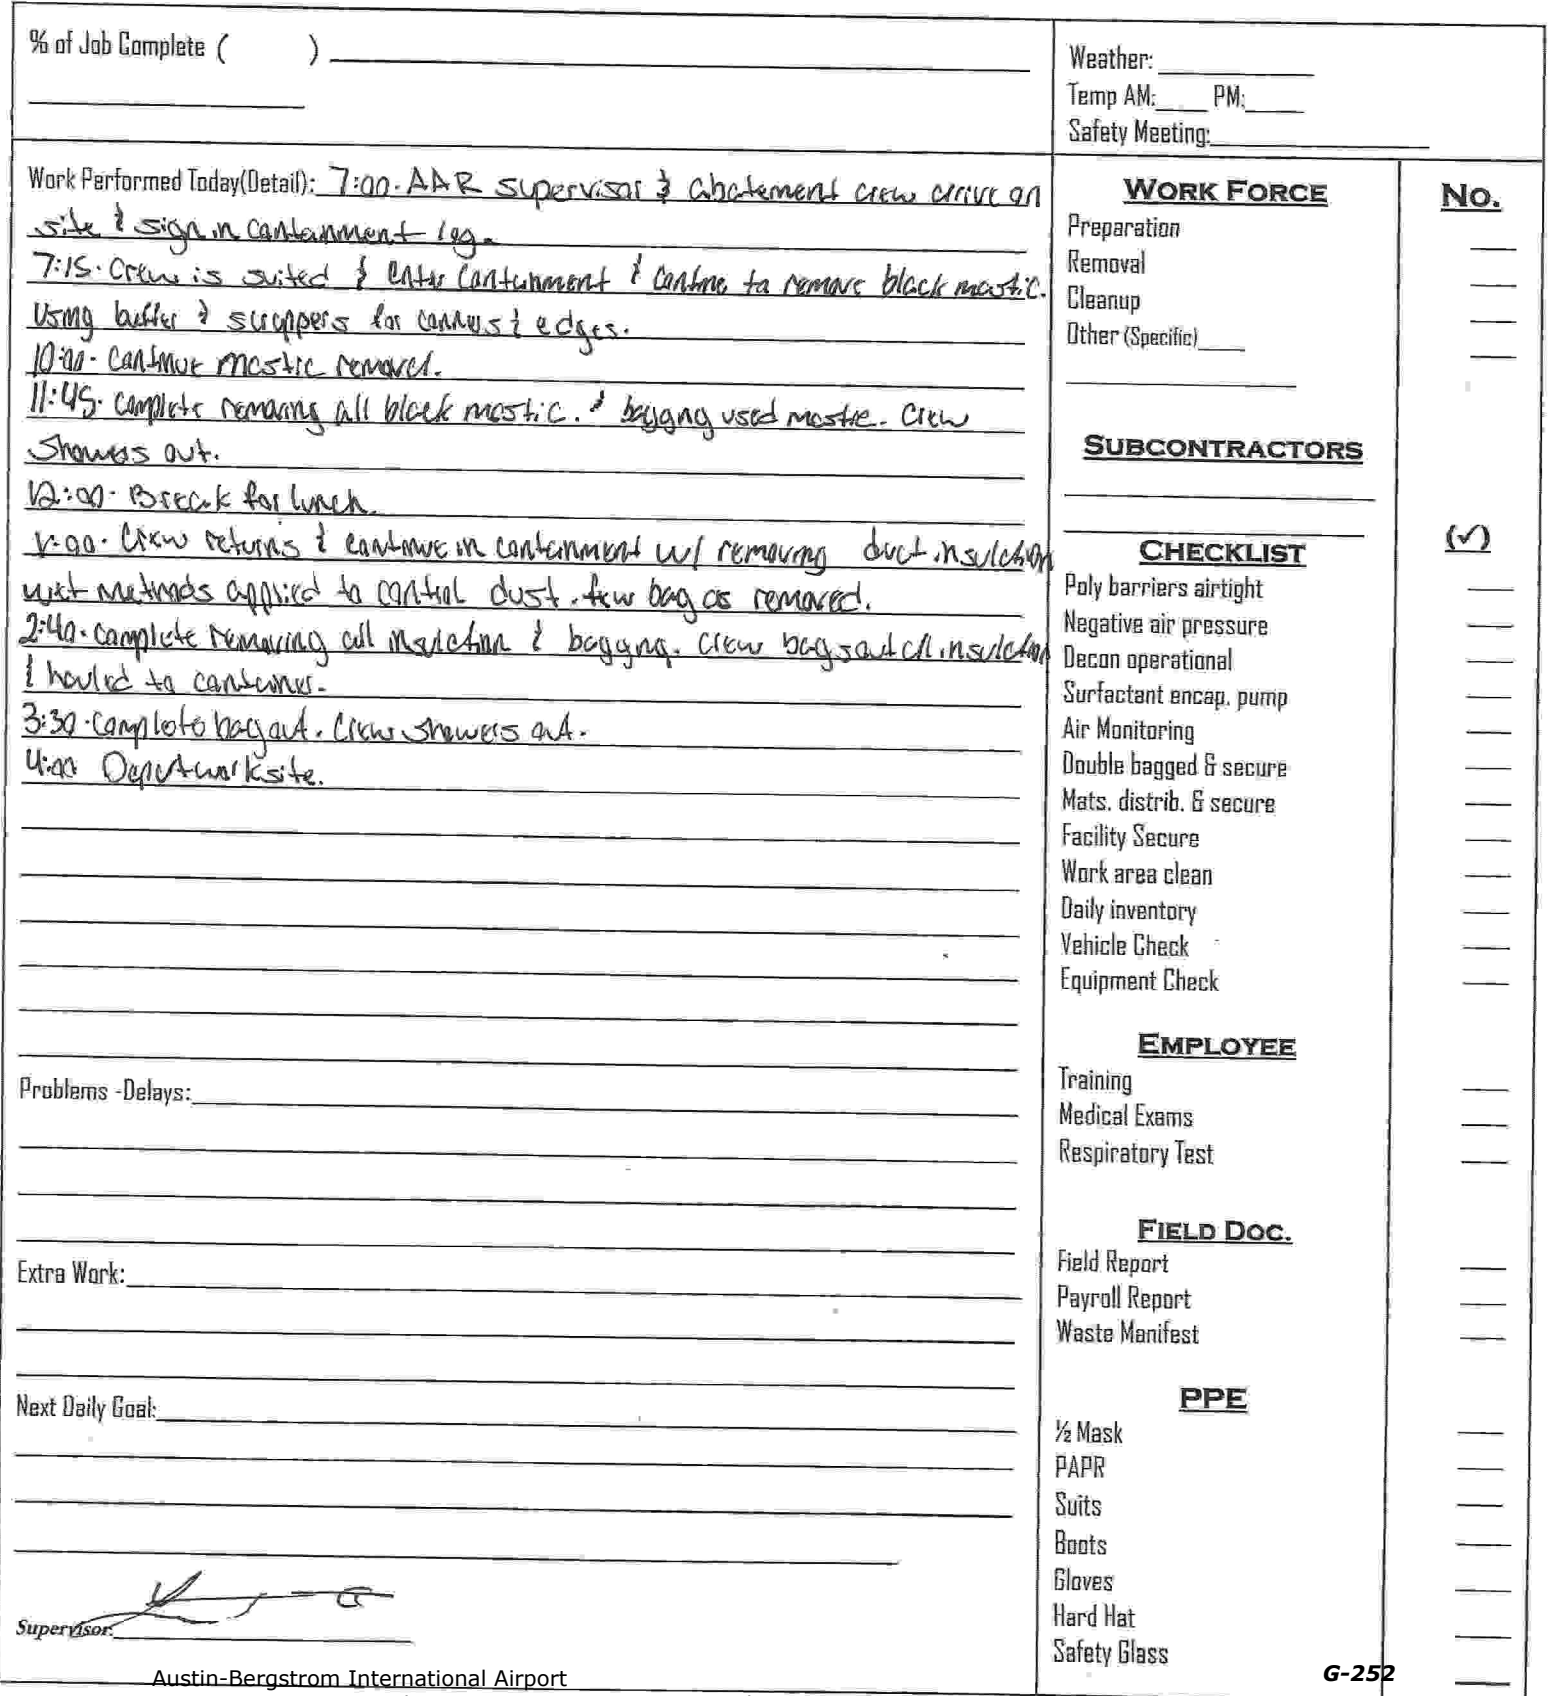 % of Job Complete ( )
Weather:
Temp AM: PM:
Safety Meeting:
Work Performed Today(Detail): 7:00. AAR supervisor & abatement crew arrive on
site & sign in containment log.
7:15. Crew is suited & enter containment & continue to remove black mastic.
Using buffer & scrappers for corners & edges.
10:00. Continue mastic removal.
11:45. Complete removing all black mastic. & bagging used mastic. Crew
showers out.
12:00. Break for lunch.
1:00. Crew returns & continue in containment w/ removing duct insulation
wet methods applied to control dust. bag as removed.
2:40. Complete removing all insulation & bagging. Crew bags out all insulation
& hauled to container.
3:30. Complete bag out. Crew showers out.
4:00 Depart worksite.
Problems -Delays:
Extra Work:
Next Daily Goal:
Supervisor:
WORK FORCE No.
Preparation
Removal
Cleanup
Other (Specific)
SUBCONTRACTORS
CHECKLIST (✓)
Poly barriers airtight
Negative air pressure
Decon operational
Surfactant encap. pump
Air Monitoring
Double bagged & secure
Mats. distrib. & secure
Facility Secure
Work area clean
Daily inventory
Vehicle Check
Equipment Check
EMPLOYEE
Training
Medical Exams
Respiratory Test
FIELD DOC.
Field Report
Payroll Report
Waste Manifest
PPE
½ Mask
PAPR
Suits
Boots
Gloves
Hard Hat
Safety Glass
Austin-Bergstrom International Airport
G-252